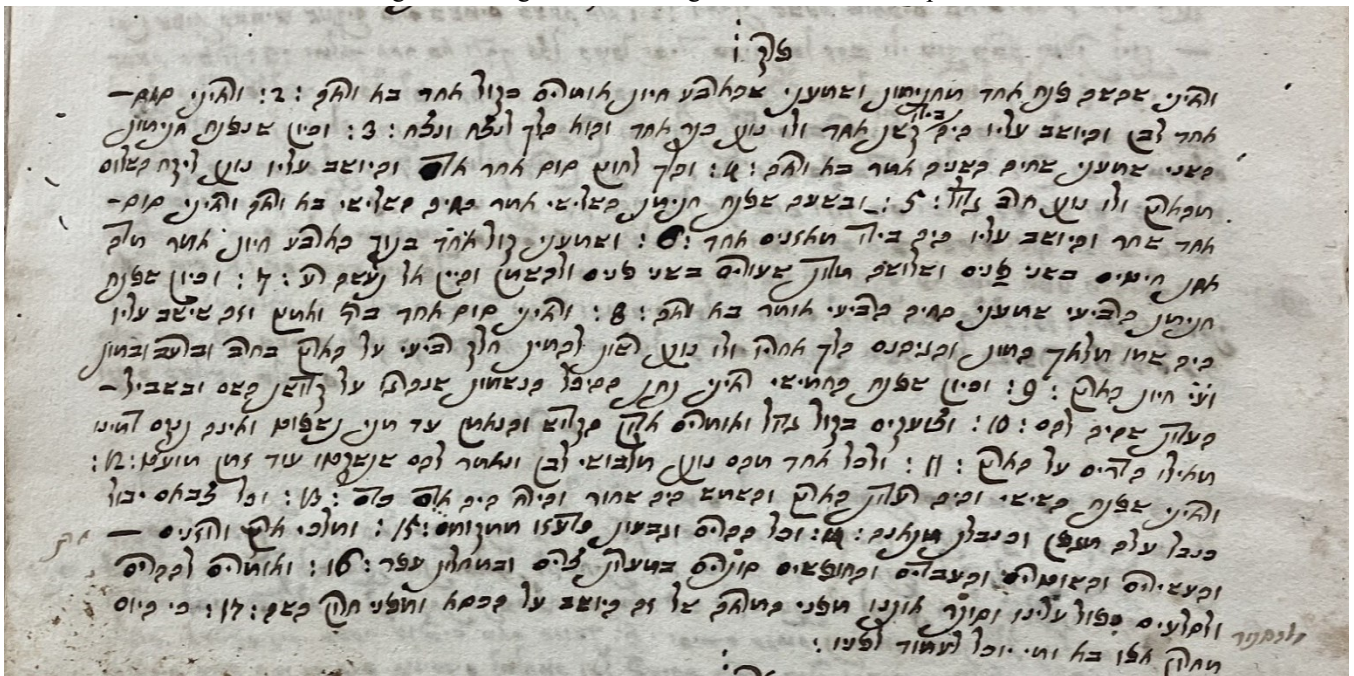 פרק ו
וראיתי שהשה פתח אחד מחתימות ושמעתי שהארבע חיות אומרים בקול אחד בא וראה :2: וראיתי סוס—
אחד לבן והיושב עליו היה בידו קשת אחד ולו נותן כתר אחד והוא הלך לנצח ונצח :3: וכיון שנפתח חתימות
השני שמעתי שחיה השניה אמר בא וראה :4: והלך לחוץ סוס אחר אדום והיושב עליו נותן ליקח השלום
מהארץ ולו נותן חרב גדול :5: ובשעה שפתח חתימת השלישי אמר החיה השלישי בא וראה וראיתי סוס—
אחד שחר והיושב עליו היה בידו מאזנים אחד :6: ושמעתי קול אחד בתוך הארבע חיות אמר מדה
אחת חיטים בשני פנים ושלושה מדות שעורים בשני פנים ולהשמן והיין אל תעשה רע :7: וכיון שפתח
חתימת הרביעי שמעתי החיה הרביעי אומר בא וראה :8: וראיתי סוס אחד ברוד ואמוץ וזה שישב עליו
היה שמו מלאך המות והגיהנם הלך אחריו ולו נותן רשות להמית חלק רביעי על הארץ בחרב וברעב ובמות
וע״י חיות הארץ :9: וכיון שפתח החמישי ראיתי תחת ההיכל הנשמות שנהרגו על השם ובשביל—
העדות שהיה להם :10: וצועקים בקול גדול ואומרים אדון הקדוש והנאמן עד מתי תשפוט ואינה נוקם דמינו
מאילו הדרים על הארץ :11: ולכל אחד מהם נותן מלבושי לבן ונאמר להם שנשקטו עוד זמן מועט :12:
וראיתי שפתח הששי והיה רעדת הארץ והשמש היה שחור והירח היה אדום כדם :13: וכל צבאם יבול
כנבל עלה מגפן וכנבלת מתאנה :14: וכל ההרים וגבעות ממקומם :15: ומלכי ארץ ורוזנים —
והעשירים והעבדים והחופשים סותרים במערות צורים ובמחלות עפר :16: ואומרים להרים
ולסלעים תפול עלינו וסותר אותנו מפני המראה של זה היושב על הכסא ומפני חרון השה :17: כי ביום
חרון אפו בא ומי יוכל לעמוד לפניו :